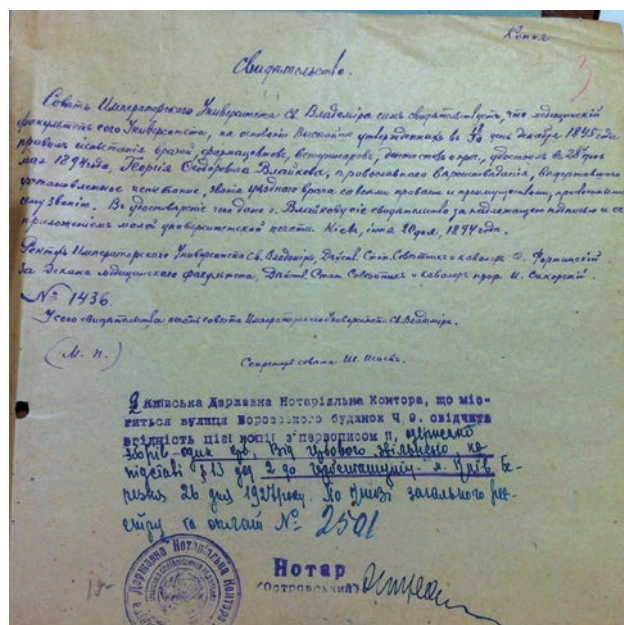 Копия
3
Свидѣтельство.
Советъ Императорскаго Университета Св. Владиміра симъ свидѣтельствуетъ, что медицинскій
факультетъ сего Университета, на основаніи Высочайше утвержденныхъ въ день декабря 1845 года
правилъ испытанія врачей, фармацевтовъ, ветеринаровъ, дантистовъ и проч., удостоилъ въ 28 день
мая 1894 года, Георгія Федоровича Влайкова, православнаго вѣроисповѣданія, выдержавшаго
установленное испытаніе, званія уѣзднаго врача со всеми правами и преимуществами, присвоенными
сему званію. Въ удостовереніе чего дано г. Влайкову сіе свидѣтельство за надлежащею подписью и съ
приложеніемъ малой университетской печати. Кіевъ, іюня 20 дня, 1894 года.
Ректоръ Императорскаго Университета Св. Владиміра, Дѣйств. Стат. Совѣтникъ и кавалеръ Ф. Фортинскій.
За Декана медицинскаго факультета, Дѣйств. Стат. Совѣтникъ и кавалеръ проф. И. Сикорскій.
№ 1436.
У сего свидѣтельства печать совѣта Императорскаго Университета Св. Владиміра.
(М. п.)
Секретарь совета М.
2 Київська Державна Нотаріяльна Контора, що міс-
титься вулиця Воровського будинок Ч 9. свідчить
згідність цієї копії з первописом
зборів один крб. Від звільнено на
підставі § 13 до 2 до м. Київ Бе-
резня 26 дня 1927 року. По книзі загального реє-
стру та оплат № 2501
Нотар
(Островський)
Державна Нотаріяльна Контора